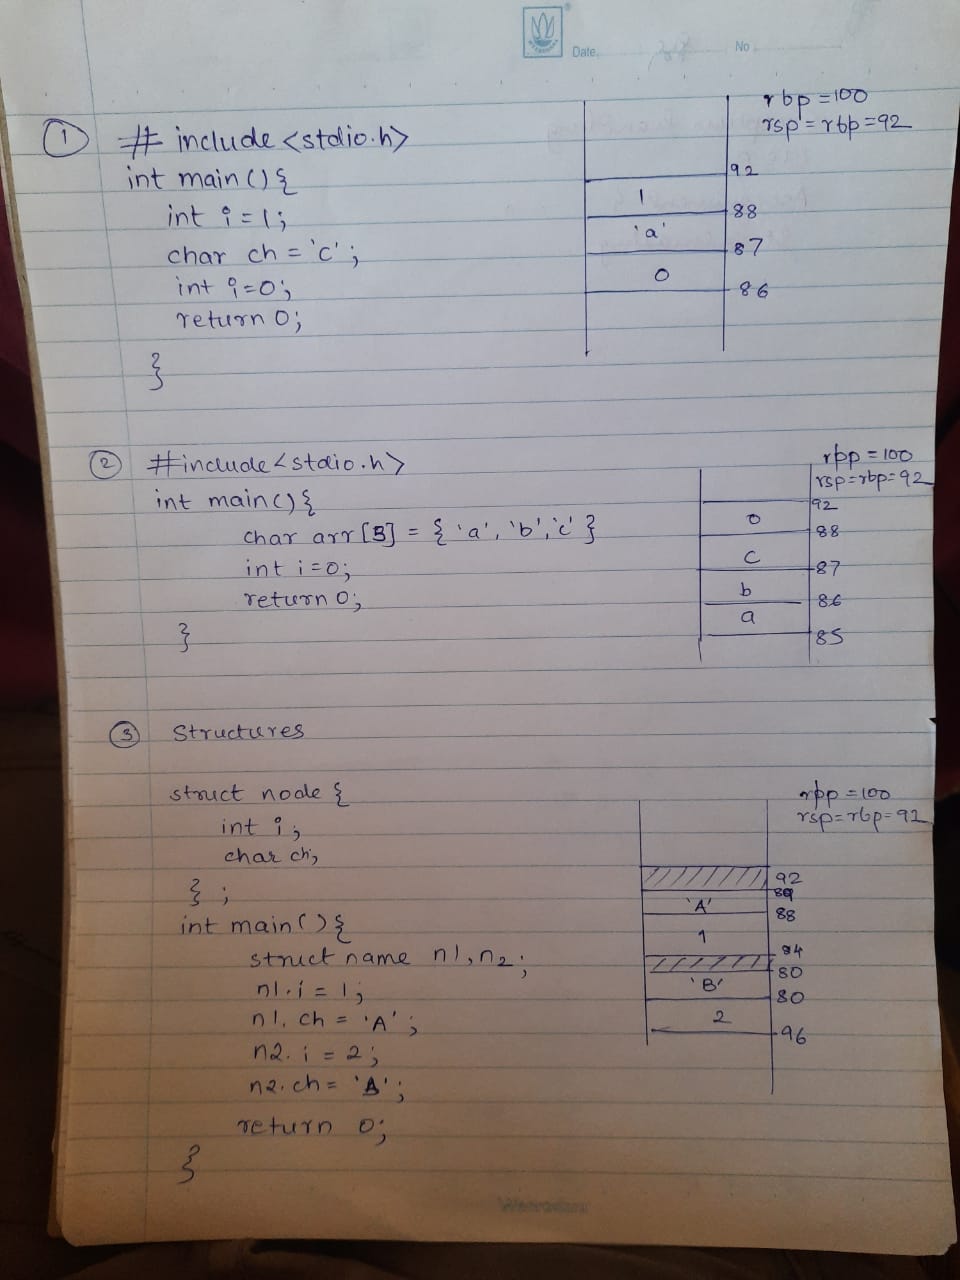 Date.
No
① # include <stdio.h>
int main () {
int i = 1;
char ch = 'c' ;
int i = 0;
return 0;
}
rbp = 100
rsp = rbp = 92
92
1
88
'a'
87
0
86
② #include <stdio.h>
int main () {
char arr [3] = { 'a', 'b', 'c' }
int i = 0;
return 0;
}
rbp = 100
rsp = rbp = 92
92
0
88
c
87
b
86
a
85
③ Structures
struct node {
int i ;
char ch;
} ;
int main () {
struct name n1, n2 ;
n1.i = 1;
n1. ch = 'A' ;
n2. i = 2 ;
n2. ch = 'B' ;
return 0;
}
rbp = 100
rsp = rbp = 92
92
89
'A'
88
1
84
80
'B'
80
2
96